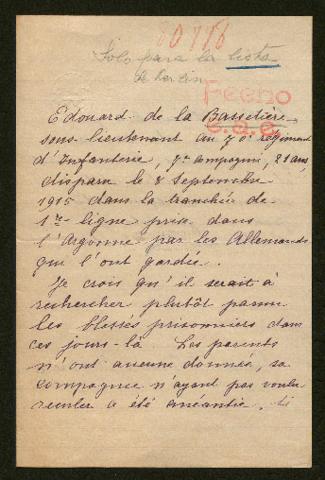 80776
Solo para la lista
Berlin
FECHO
Edouard de la Bassetière
sous-lieutenant au 70e régiment
d'Infanterie, 7e Compagnie, 21 ans,
disparu le 8 Septembre
1915 dans la tranchée de
1re ligne prise dans
l'Argonne par les Allemands
qui l'ont gardée.
Je crois qu'il serait à
rechercher plutôt parmi
les blessés prisonniers dans
ces jours-là Les parents
n'ont aucune donnée, sa
compagnie n'ayant pas voulu
reculer a été anéantie.